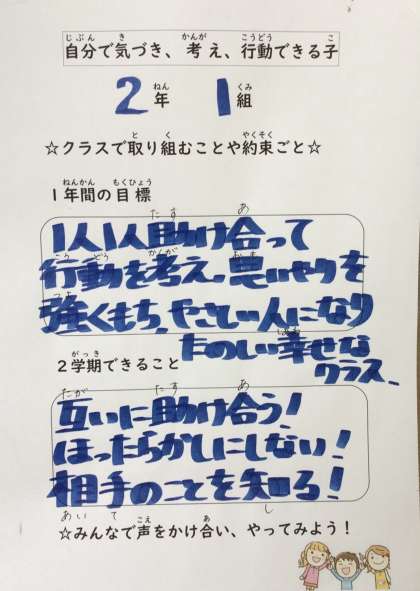 自分で気づき、考え、行動できる子
2年 1組
☆クラスで取り組むことや約束ごと☆
1年間の目標
1人1人助け合って
行動を考え、思いやりを
強くもち、やさしい人になり
たのしい幸せな
クラス、
2学期できること
互いに助け合う!
ほったらかしにしない!
相手のことを知る!
☆みんなで声をかけ合い、やってみよう!